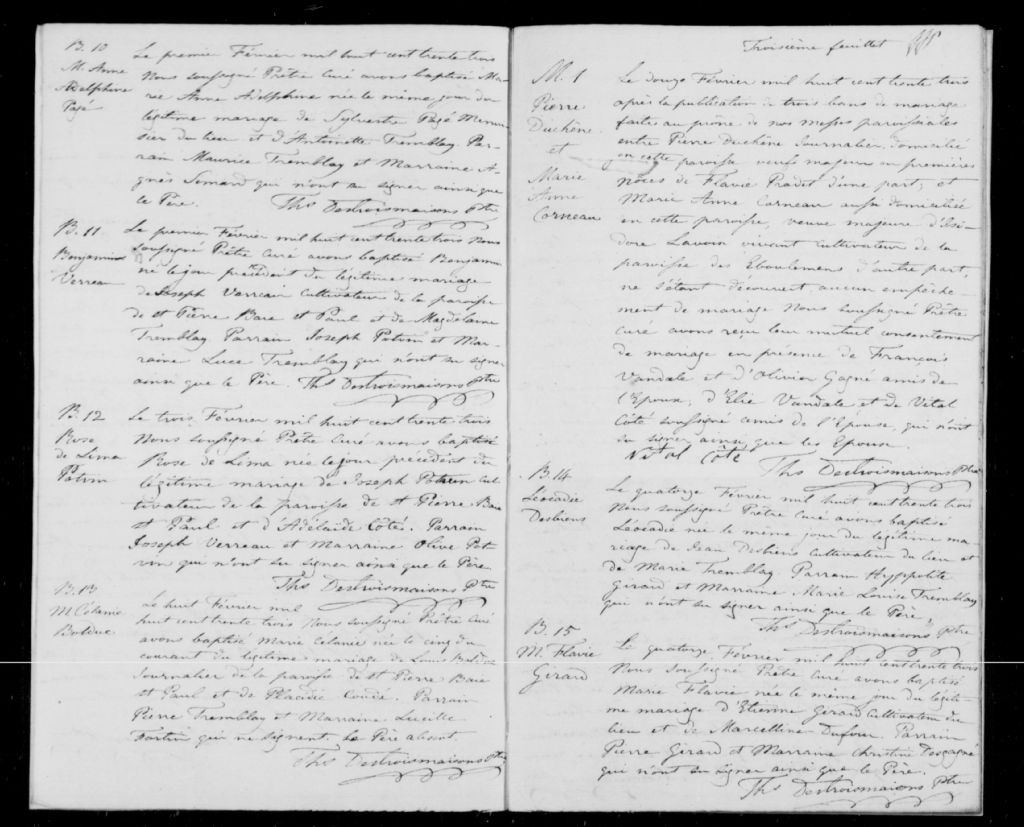 B. 10
M. Anne
Adelphine
Pagé
Le premier Février mil huit cent trente trois
Nous soussigné Prêtre Curé avons baptisé Ma-
rie Anne Adelphine née le même jour du
légitime mariage de Sylvestre Pagé Menui
sier du lieu et d'Antoinette Tremblay. Par-
rain Maurice Tremblay et Marraine A-
gnès Simard qui n'ont su signer ainsi que
le Père. Ths Destroismaisons Ptre
B. 11
Benjamin
Verreau
Le premier Février mil huit cent trente trois Nous
soussigné Prêtre Curé avons baptisé Benjamin
né le jour précédent du légitime mariage
de Joseph Cultivateur de la paroisse
de St Pierre Baie St Paul et de Magdelaine
Tremblay Parrain Joseph Potvin et Mar-
raine Luce Tremblay qui n'ont su signer
ainsi que le Père. Ths Destroismaisons Ptre
B. 12
Rose
de Lima
Potvin
Le trois Février mil huit cent trente trois
Nous soussigné Prêtre Curé avons baptisé
Rose de Lima née le jour précédent du
légitime mariage de Joseph Potvin Cul
tivateur de la paroisse de St Pierre Baie
St Paul et d'Adélaide Côté. Parrain
Joseph Verreau et Marraine Olive Pot
vin qui n'ont su signer ainsi que le Père
Ths Destroismaisons Ptre
B. 13
M. Célanie
Bolduc
Le huit Février mil
huit cent trente trois Nous soussigné Prêtre Curé
avons baptisé Marie Célanie née le cinq du
courant du légitime mariage de Louis Bolduc
Journalier de la paroisse de St Pierre Baie
St Paul et de Placidie. Parrain
Pierre Tremblay et Marraine Lucille
Fortin qui ne signent. Le Père absent.
Ths Destroismaisons Ptre
Troisième feuillet
M. 1
Pierre
Duchêne
et
Marie
Anne
Corneau
Le douze Février mil huit cent trente trois
après la publication de trois bans de mariage
faites au prône de nos Messes paroissiales
entre Pierre Duchêne Journalier, domicilié
en cette paroisse veuf majeur en premières
nôces de Flavie Pradet d'une part; et
Marie Anne Corneau aussi domiciliée
en cette paroisse, veuve majeure d'Isi-
dore Lavoin vivant Cultivateur de la
paroisse des Eboulemens d'autre part,
ne s'étant découvert aucun empêche-
ment de mariage Nous soussigné Prêtre
Curé avons reçu leur mutuel consentement
de mariage en présence de François
Vandale et d'Olivier Gagné amis de
l'Epoux, d'Elie Vandale et de Vital
Côté soussigné amis de l'Epouse, qui n'ont
su signer ainsi que les Epoux
Vital Côté
Ths Destroismaisons Ptre
B. 14
Léocadie
Desbiens
Le quatorze Février mil huit cent trente trois
Nous soussigné Prêtre Curé avons baptisé
Léocadie née le même jour du légitime ma-
riage de Jean Desbiens Cultivateur du lieu et
de Marie Tremblay Parrain Hyppolite
Girard et Marraine Marie Louise Tremblay
qui n'ont su signer ainsi que le Père,
Ths Destroismaisons Ptre
B. 15
M. Flavie
Girard
Le quatorze Février mil huit cent trente trois
Nous soussigné Prêtre Curé avons baptisé
Marie Flavie née le même jour du légiti-
me mariage d'Etienne Girard Cultivateur du
lieu et de Marcelline Dufour. Parrain
Pierre Girard et Marraine Christine Desgagné
qui n'ont su signer ainsi que le Père.
Ths Destroismaisons Ptre